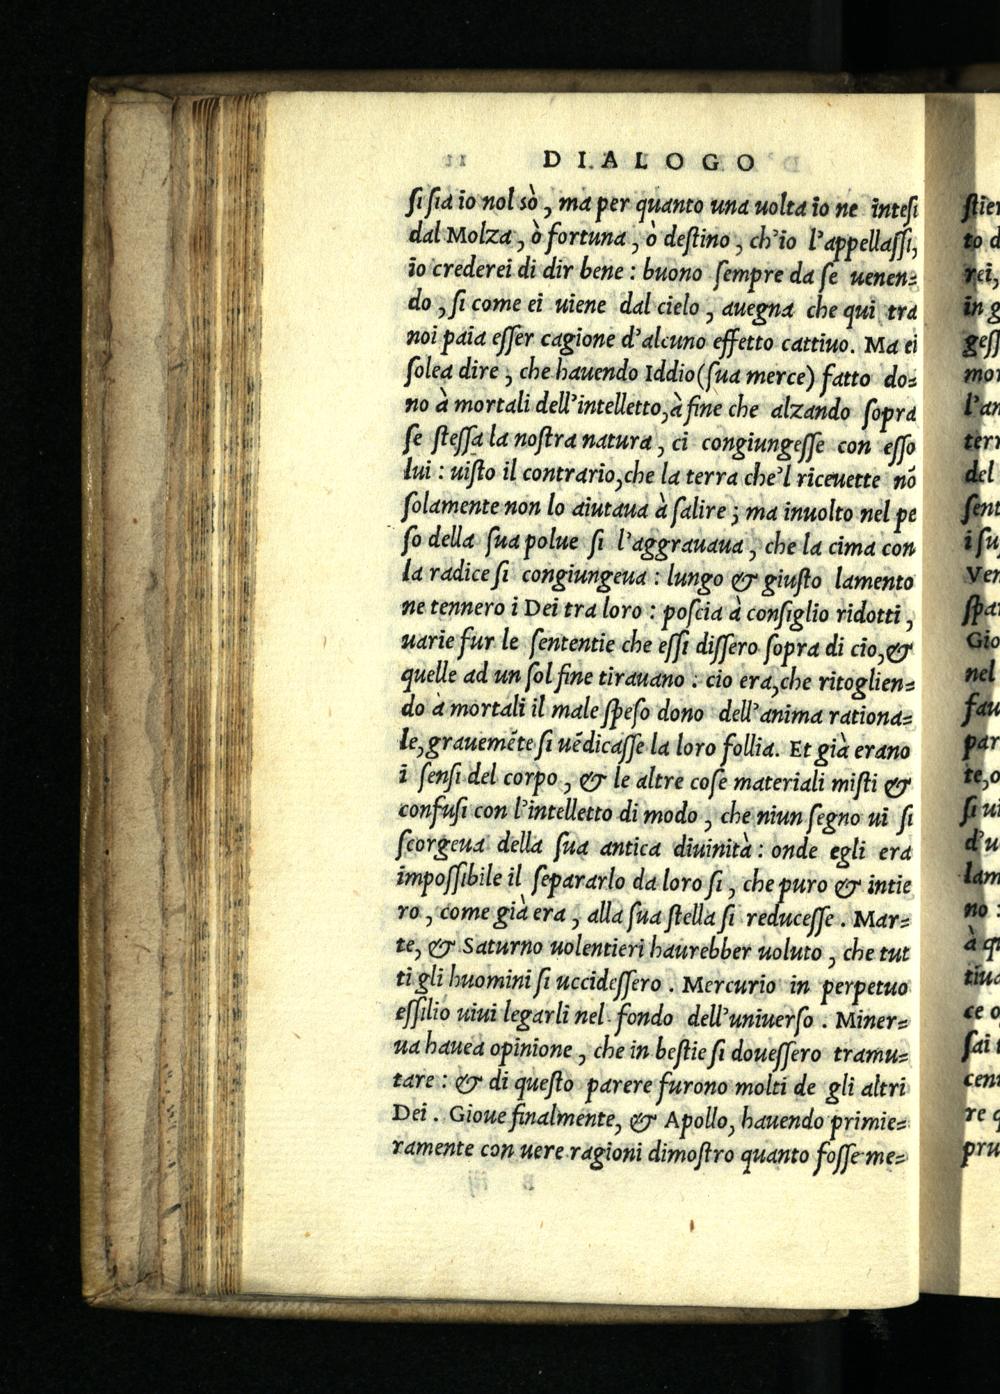 DIALOGO
si sia io nol sò, ma per quanto una uolta io ne intesi
dal Molza, ò fortuna, ò destino, ch'io l'appellassi,
io crederei di dir bene: buono sempre da se uenen=
do, si come ei uiene dal cielo, auegna che qui tra
noi paia esser cagione d'alcuno effetto cattiuo. Ma ei
solea dire, che hauendo Iddio (sua merce) fatto do=
no à mortali dell'intelletto, à fine che alzando sopra
se stessa la nostra natura, ci congiungesse con esso
lui: uisto il contrario, che la terra che'l riceuette nõ
solamente non lo aiutaua à salire; ma inuolto nel pe
so della sua polue si l'aggrauaua, che la cima con
la radice si congiungeua: lungo & giusto lamento
ne tennero i Dei tra loro: poscia à consiglio ridotti,
uarie fur le sententie che essi dissero sopra di cio, &
quelle ad un sol fine tirauano: cio era, che ritoglien=
do à mortali il male speso dono dell'anima rationa=
le, grauemẽte si uẽdicasse la loro follia. Et già erano
i sensi del corpo, & le altre cose materiali misti &
confusi con l'intelletto di modo, che niun segno ui si
scorgeua della sua antica diuinità: onde egli era
impossibile il separarlo da loro si, che puro & intie
ro, come già era, alla sua stella si reducesse. Mar=
te, & Saturno uolentieri haurebber uoluto, che tut
ti gli huomini si uccidessero. Mercurio in perpetuo
essilio uiui legarli nel fondo dell'uniuerso. Miner=
ua hauea opinione, che in bestie si douessero tramu=
tare: & di questo parere furono molti de gli altri
Dei. Gioue finalmente, & Apollo, hauendo primie=
ramente con uere ragioni dimostro quanto fosse me=